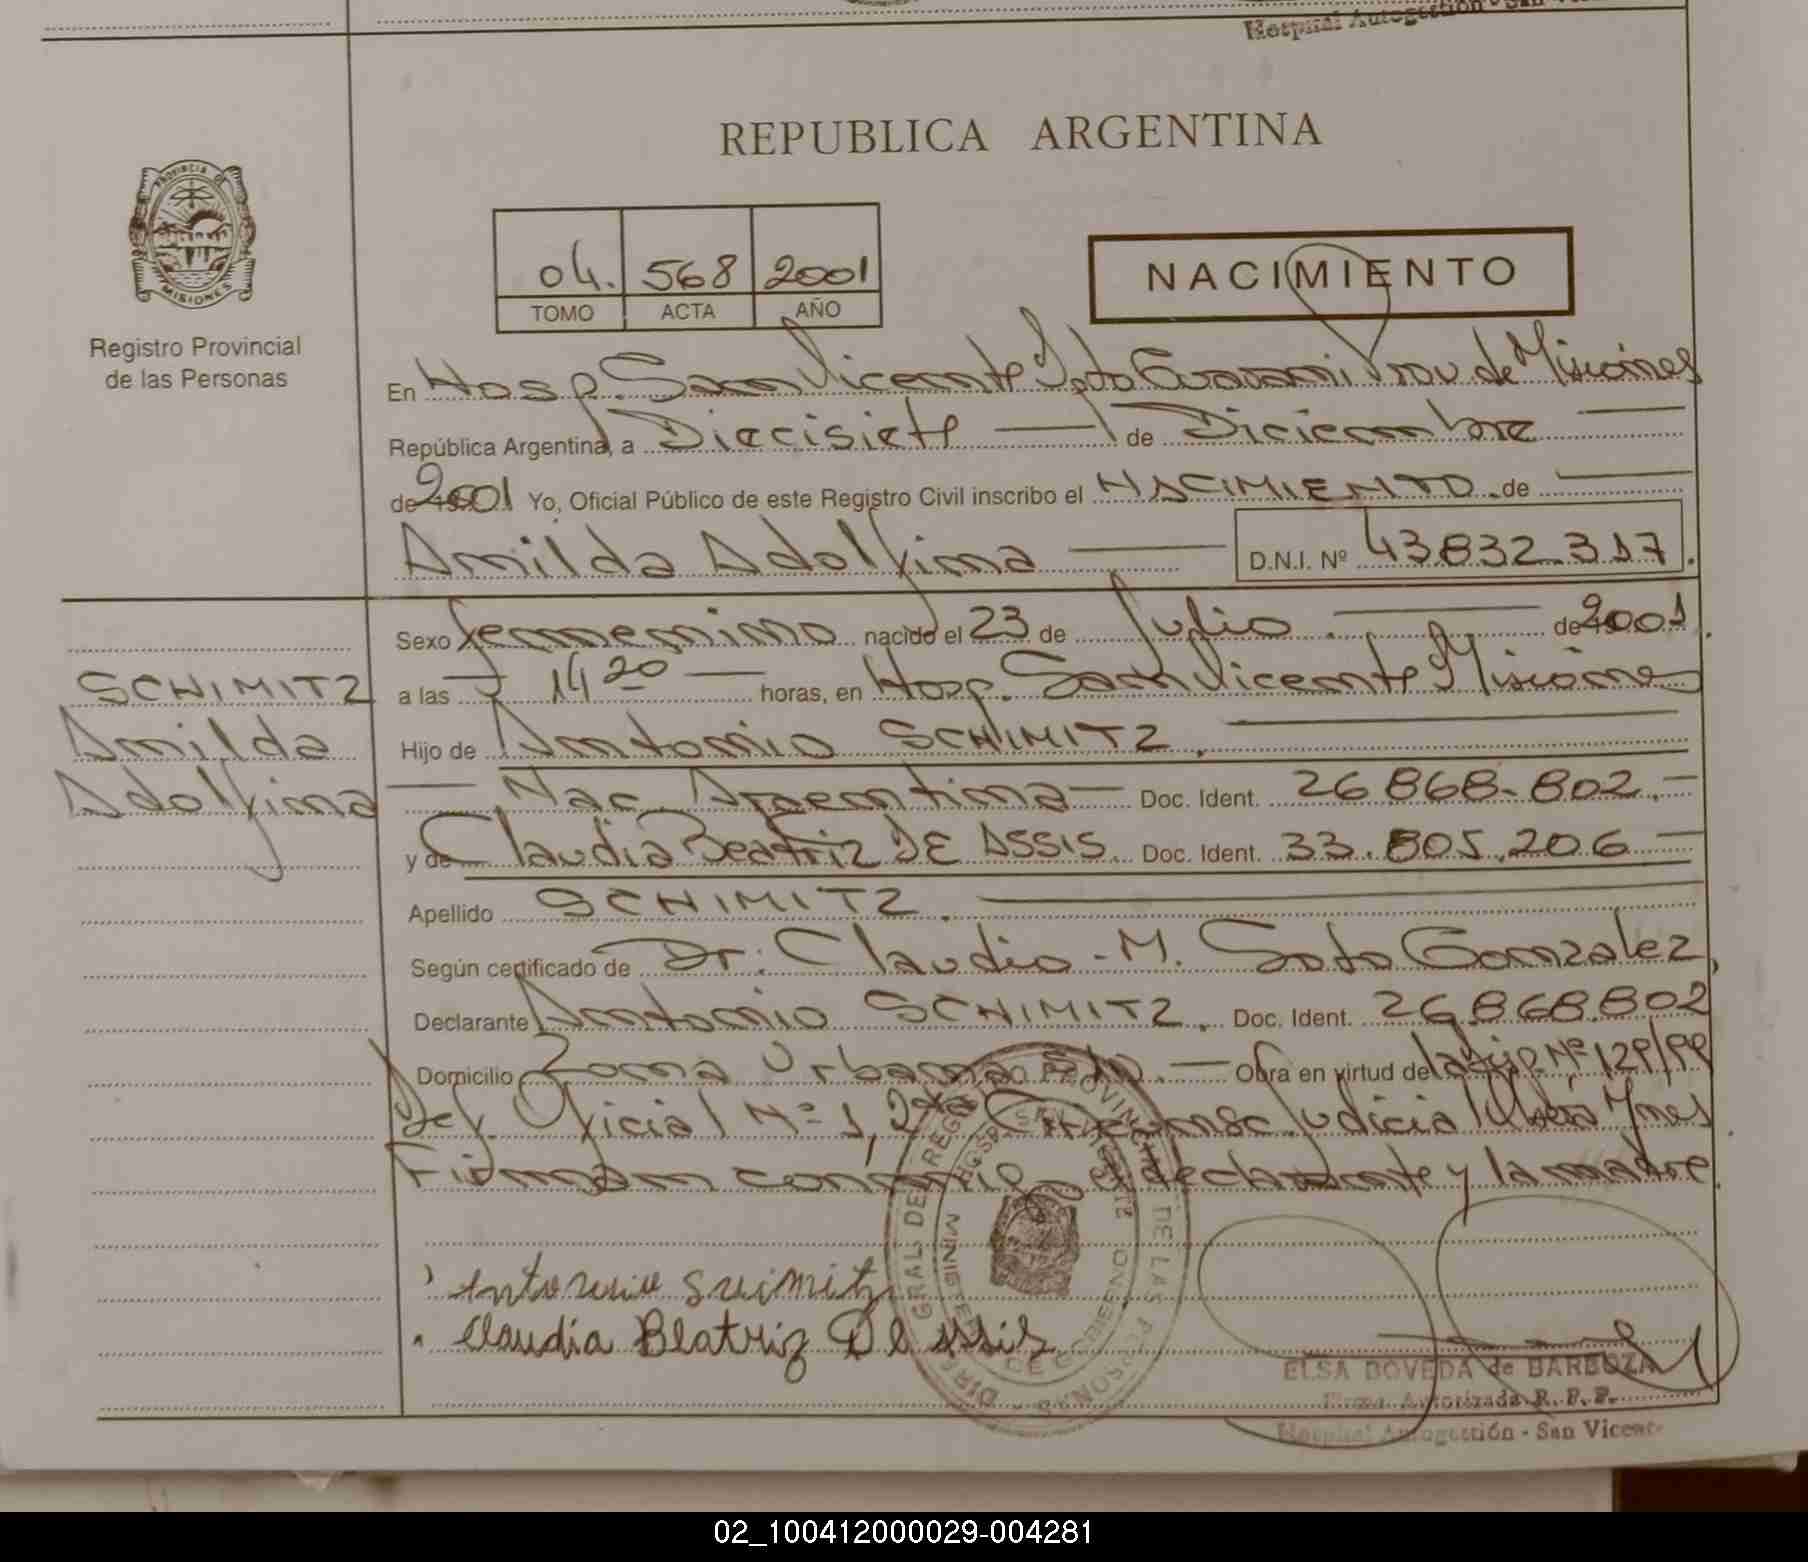 Hospital Autogestión - San Vicente
REPUBLICA ARGENTINA
PROVINCIA DE
MISIONES
Registro Provincial
de las Personas
04. 568 2001
TOMO ACTA AÑO
NACIMIENTO
En Hosp. San Vicente Dpto Guarani Prov de Misiones
República Argentina, a Diecisiete de Diciembre
de 2001 Yo, Oficial Público de este Registro Civil inscribo el NACIMIENTO de
Amilda Adolfina D.N.I. Nº 43.832.317.
Sexo femenino nacido el 23 de Julio de 2001.
SCHIMITZ
Amilda
Adolfina
a las 14 20 horas, en Hosp. San Vicente Misiones
Hijo de Antonio SCHIMITZ.
Nac. Argentina Doc. Ident. 26.868.802.
y de Claudia Beatriz DE ASSIS. Doc. Ident. 33.805.206
Apellido SCHIMITZ.
Según certificado de Dr. Claudio M. Soto Gonzalez,
Declarante Antonio SCHIMITZ. Doc. Ident. 26.868.802
Domicilio Zona Urbana Obra en virtud de la Nº 129/99
Def. Oficial Nº 1, 2da Circunsc. Judicial
Firman conmigo el declarante y la madre.
Claudia Beatriz De Assis
DIR. GRAL. DEL REGISTRO PROVINCIAL DE LAS PERSONAS
HOSP. SAN VICENTE
MINISTERIO DE GOBIERNO
ELSA BOVEDA de BARBOZA
Firma Autorizada R. P. P.
Hospital Autogestión - San Vicente
02_100412000029-004281